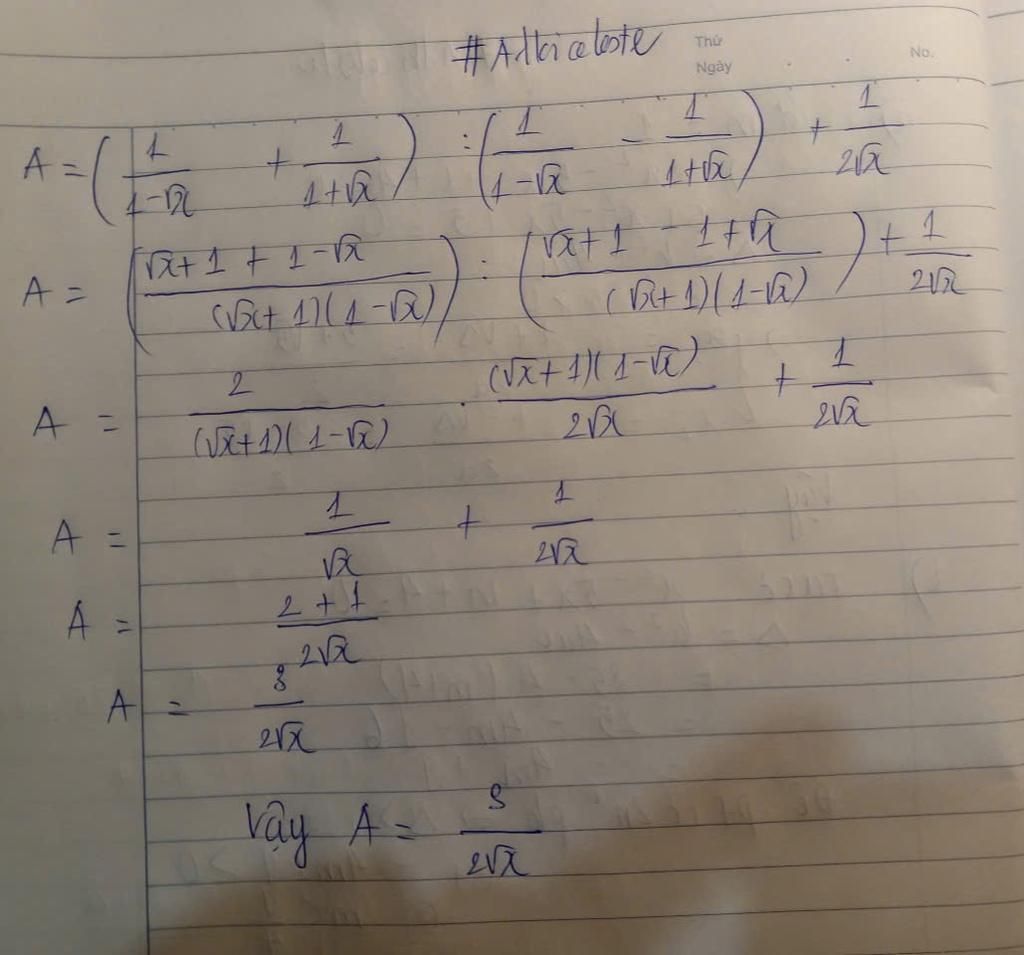 #Albiceleste
Thứ
Ngày
No.
A = (1/(1-√x) + 1/(1+√x)) : (1/(1-√x) - 1/(1+√x)) + 1/(2√x)
A = ((√x+1+1-√x)/((√x+1)(1-√x))) : ((√x+1-1+√x)/((√x+1)(1-√x))) + 1/(2√x)
A = 2/((√x+1)(1-√x)) . ((√x+1)(1-√x))/(2√x) + 1/(2√x)
A = 1/√x + 1/(2√x)
A = (2+1)/(2√x)
A = 3/(2√x)
Vậy A = 3/(2√x)